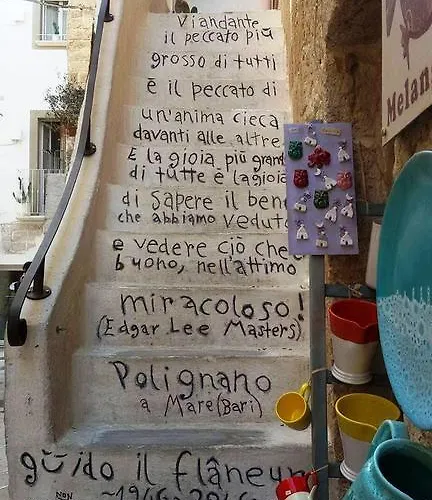 Viandante
il peccato più
grosso di tutti
è il peccato di
un'anima cieca
davanti alle altre
E la gioia più grand
di tutte è la gioia
di sapere il bene
che abbiamo veduto
e vedere ciò che
buono, nell'attimo
miracoloso!
(Edgar Lee Masters)
Polignano
a Mare (Bari)
guido il flâneur
NON
~1946~2016~
Melan